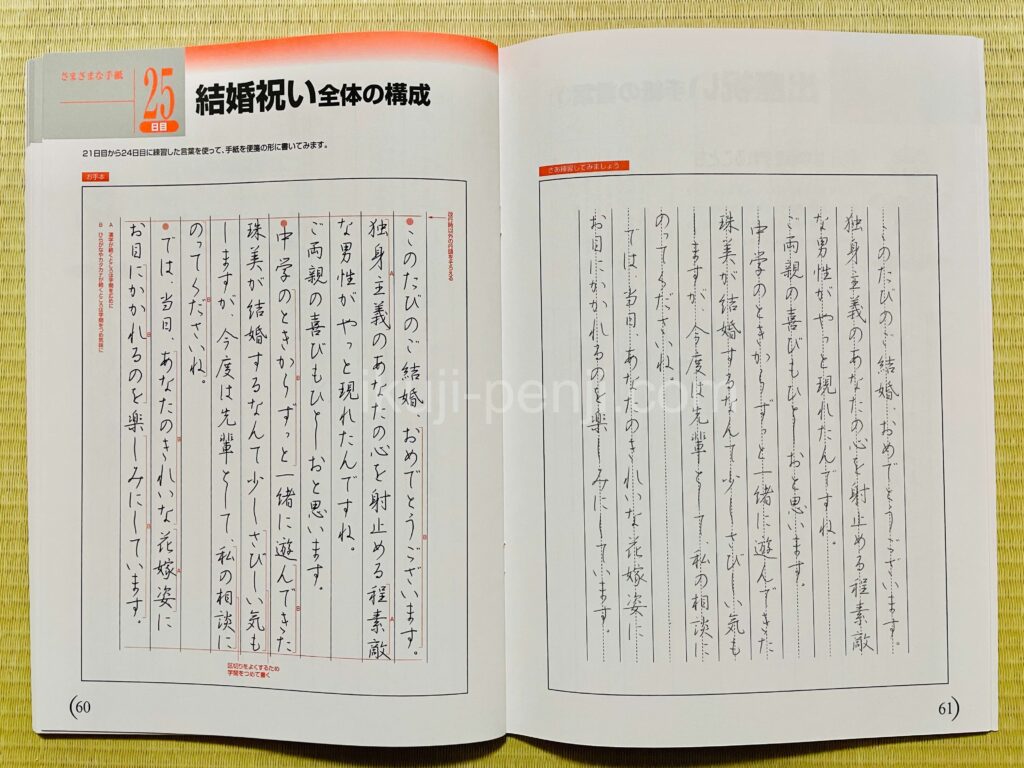 さまざまな手紙
25
日目
結婚祝い全体の構成
21日目から24日目に練習した言葉を使って、手紙を便箋の形に書いてみます。
お手本
このたびのご結婚、おめでとうございます。
独身主義のあなたの心を射止める程素敵
な男性がやっと現れたんですね。
ご両親の喜びもひとしおと思います。
中学のときからずっと一緒に遊んできた
珠美が結婚するなんて少しさびしい気も
しますが、今度は先輩として、私の相談に
のってくださいね。
では、当日、あなたのきれいな花嫁姿に
お目にかかれるのを楽しみにしています。
A
B
B
A
B
B
B
B
B
A
A 漢字が続くところは字間を広めに
B ひらがなやカタカナが続くところは字間をつめ気味に
区切りをよくするため
字間をつめて書く
60
さあ練習してみましょう
このたびのご結婚、おめでとうございます。
独身主義のあなたの心を射止める程素敵
な男性がやっと現れたんですね。
ご両親の喜びもひとしおと思います。
中学のときからずっと一緒に遊んできた
珠美が結婚するなんて少しさびしい気も
しますが、今度は先輩として、私の相談に
のってくださいね。
では、当日、あなたのきれいな花嫁姿に
お目にかかれるのを楽しみにしています。
61
ikuji-penji.com